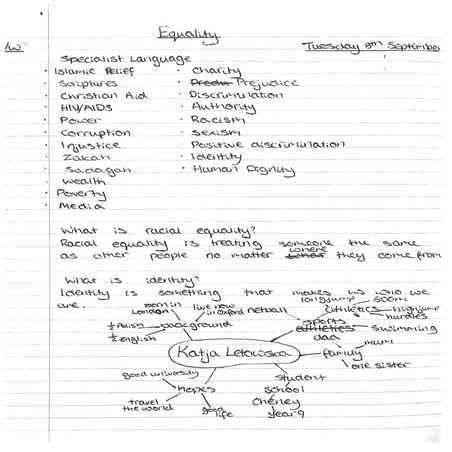 Equality
Tuesday 8th September
Specialist Language
· Islamic Relief · Charity
· Scriptures · Prejudice
· Christian Aid · Discrimination
· HIV/AIDS · Authority
· Power · Racism
· Corruption · Sexism
· Injustice · Positive discrimination
· Zakah · Identity
· Sadaqah · Human Dignity
· Wealth
· Poverty
· Media
What is racial equality?
Racial equality is treating someone the same
as other people no matter where they come from
What is identity?
Identity is something that makes us who we
are.
born in London
live now in Oxford
netball
long jump
800m
athletics
high jump
hurdles
½ Polish
½ english
background
sports
athletics
swimming
dad
mum
Katja
family
one sister
good university
hopes
travel the world
good life
student
school
Cheney
year 9